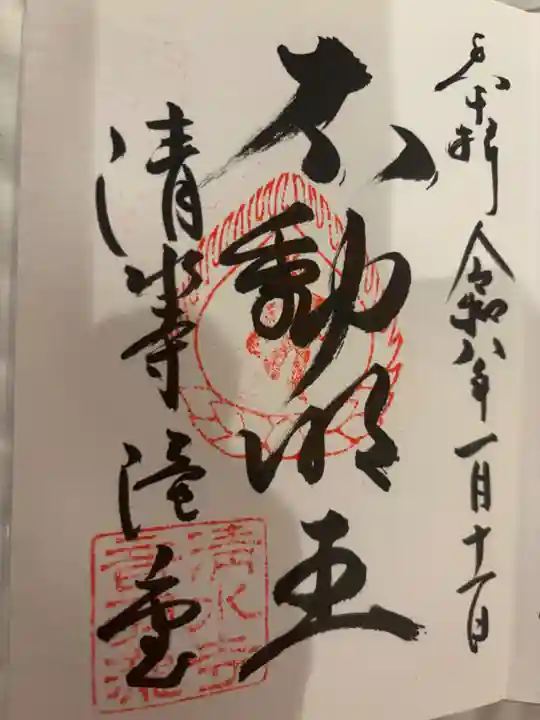 奉拝 令和八年一月十一日
不動明王
清水寺 滝堂
清水寺
音羽滝